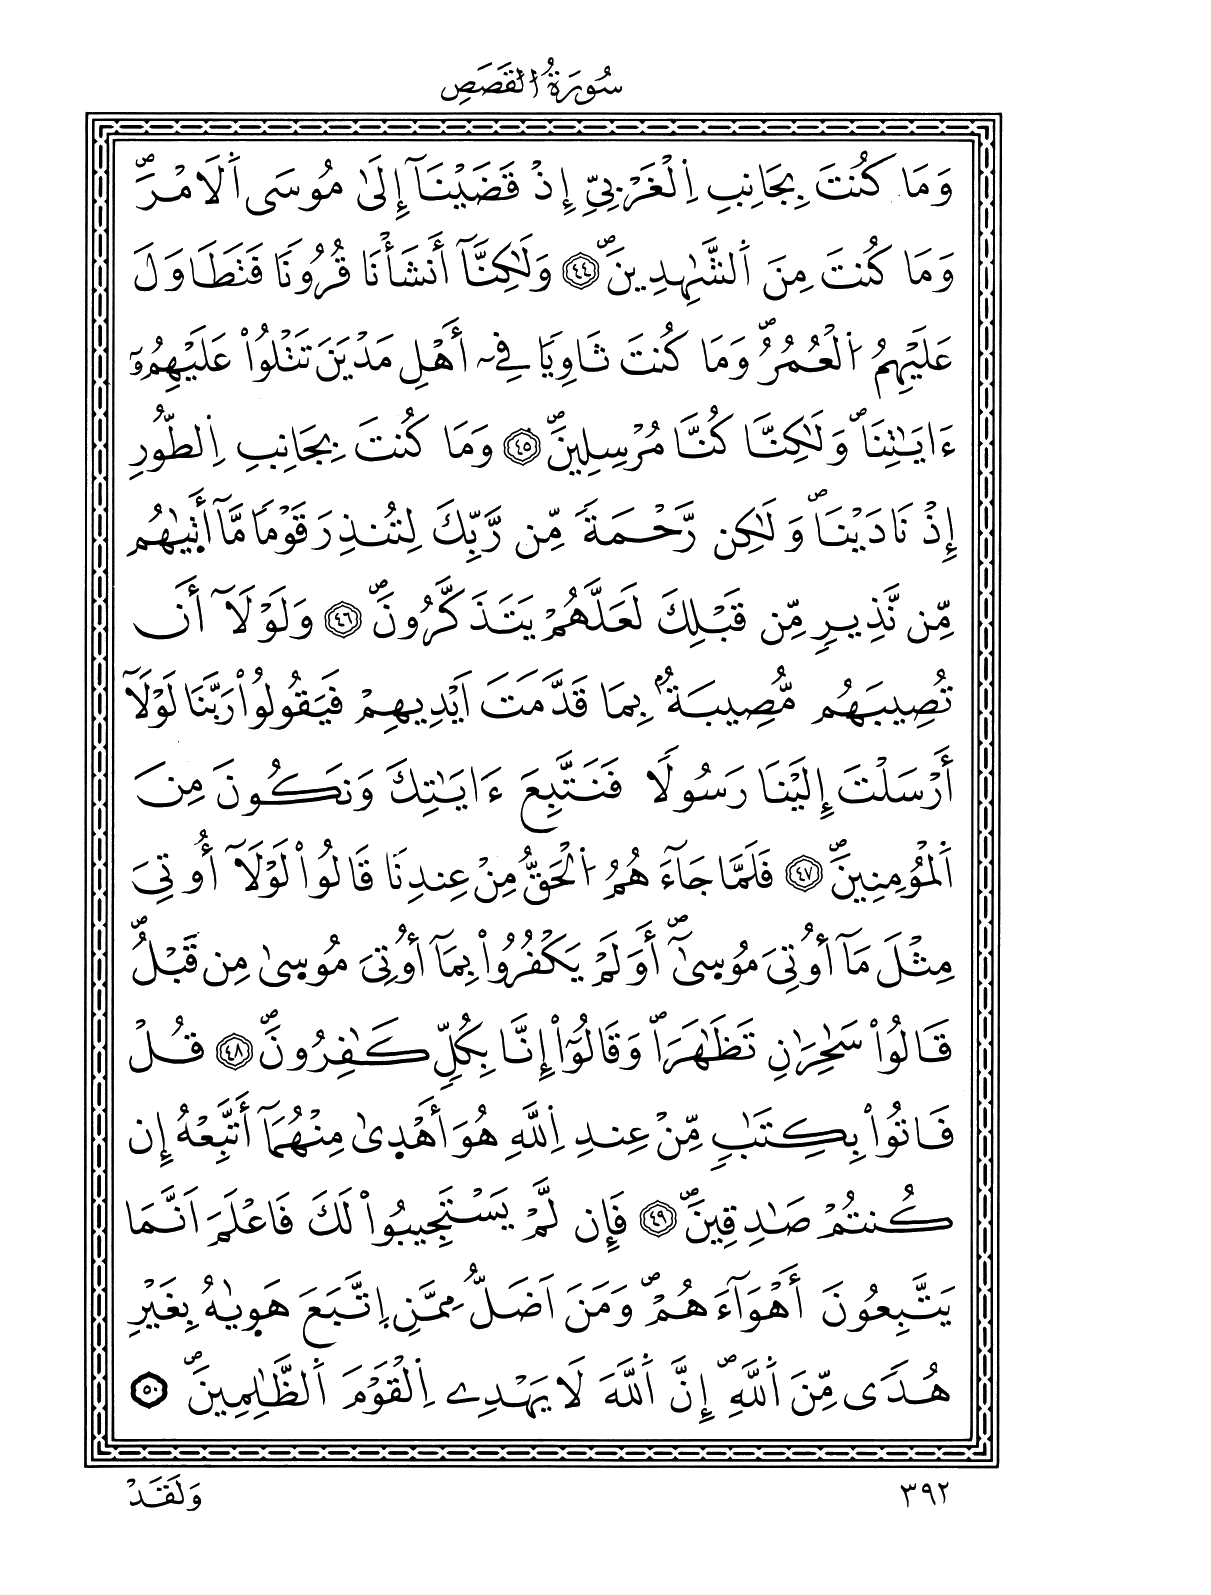 سُورَةُ القَصَصِ
وَمَا كُنتَ بِجَانِبِ اِ۬لْغَرْبِيِّ إِذْ قَضَيْنَآ إِلَىٰ مُوسَى اَ۬لَامْرَۖ
وَمَا كُنتَ مِنَ اَ۬لشَّٰهِدِينَۖ ٤٤ وَلَٰكِنَّآ أَنشَأْنَا قُرُوناٗ فَتَطَاوَلَ
عَلَيْهِمُ اُ۬لْعُمُرُۖ وَمَا كُنتَ ثَاوِياٗ فِےٓ أَهْلِ مَدْيَنَ تَتْلُواْ عَلَيْهِمُۥٓ
ءَايَٰتِنَاۖ وَلَٰكِنَّا كُنَّا مُرْسِلِينَۖ ٤٥ وَمَا كُنتَ بِجَانِبِ اِ۬لطُّورِ
إِذْ نَادَيْنَاۖ وَلَٰكِن رَّحْمَةٗ مِّن رَّبِّكَ لِتُنذِرَ قَوْماٗ مَّآ أَت۪يٰهُم
مِّن نَّذِيرٖ مِّن قَبْلِكَ لَعَلَّهُمْ يَتَذَكَّرُونَۖ ٤٦ وَلَوْلَآ أَن
تُصِيبَهُم مُّصِيبَةُۢ بِمَا قَدَّمَتَ اَيْدِيهِمْ فَيَقُولُواْ رَبَّنَا لَوْلَآ
أَرْسَلْتَ إِلَيْنَا رَسُولاٗ فَنَتَّبِعَ ءَايَٰتِكَ وَنَكُونَ مِنَ
اَ۬لْمُؤْمِنِينَۖ ٤٧ فَلَمَّا جَآءَهُمُ اُ۬لْحَقُّ مِنْ عِندِنَا قَالُواْ لَوْلَآ أُوتِيَ
مِثْلَ مَآ أُوتِيَ مُوس۪ىٰٓۖ أَوَلَمْ يَكْفُرُواْ بِمَآ أُوتِيَ مُوس۪ىٰ مِن قَبْلُۖ
قَالُواْ سَٰحِرَٰنِ تَظَّٰهَرَاۖ وَقَالُوٓاْ إِنَّا بِكُلّٖ كَٰفِرُونَۖ ٤٨ قُلْ
فَاتُواْ بِكِتَٰبٖ مِّنْ عِندِ اِ۬للَّهِ هُوَ أَهْد۪ىٰ مِنْهُمَآ أَتَّبِعْهُ إِن
كُنتُمْ صَٰدِقِينَۖ ٤٩ فَإِن لَّمْ يَسْتَجِيبُواْ لَكَ فَاعْلَمَ اَنَّمَا
يَتَّبِعُونَ أَهْوَآءَهُمْۖ وَمَنَ اَضَلُّ مِمَّنِ اِ۪تَّبَعَ هَو۪يٰهُ بِغَيْرِ
هُدٗى مِّنَ اَ۬للَّهِۖ إِنَّ اَ۬للَّهَ لَا يَهْدِے اِ۬لْقَوْمَ اَ۬لظَّٰلِمِينَۖ ٥٠
٣٩٢
وَلَقَدْ